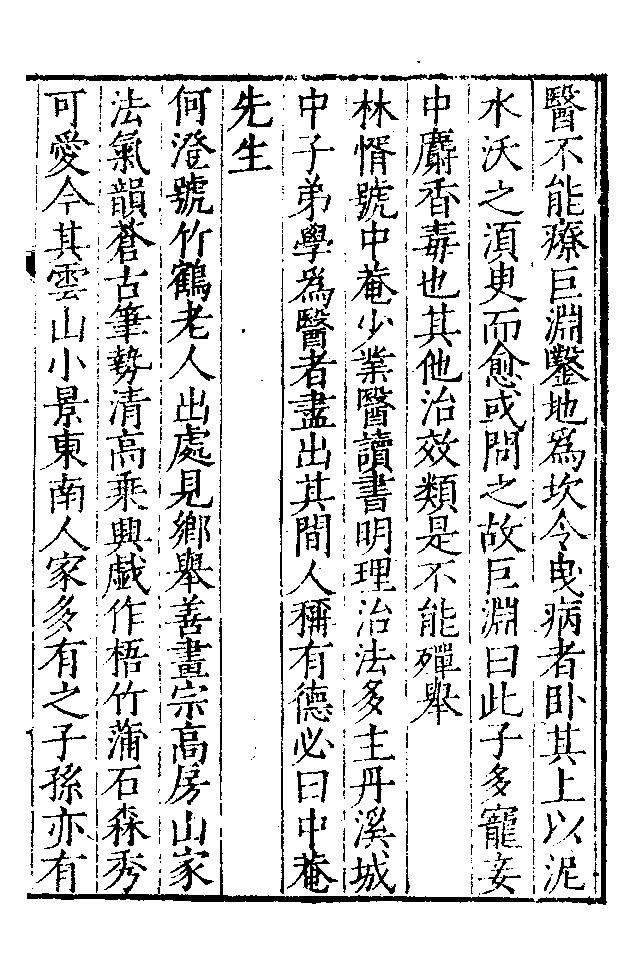 醫不能療巨淵鑿地為坎令曳病者卧其上以泥
水沃之湏叟而愈或問之故巨淵曰此子多寵妾
中麝香毒也其他治效類是不能殫舉
林惰號中菴少業醫讀書明理治法多主丹溪城
中子弟學為醫者盡出其間人稱有德必曰中菴
先生
何澄號竹鶴老人出處見鄉舉善畫宗高房山家
法氣韻蒼古筆勢清高乘興戯作梧竹蒲石森秀
可愛今其雲山小景東南人家多有之子孫亦有